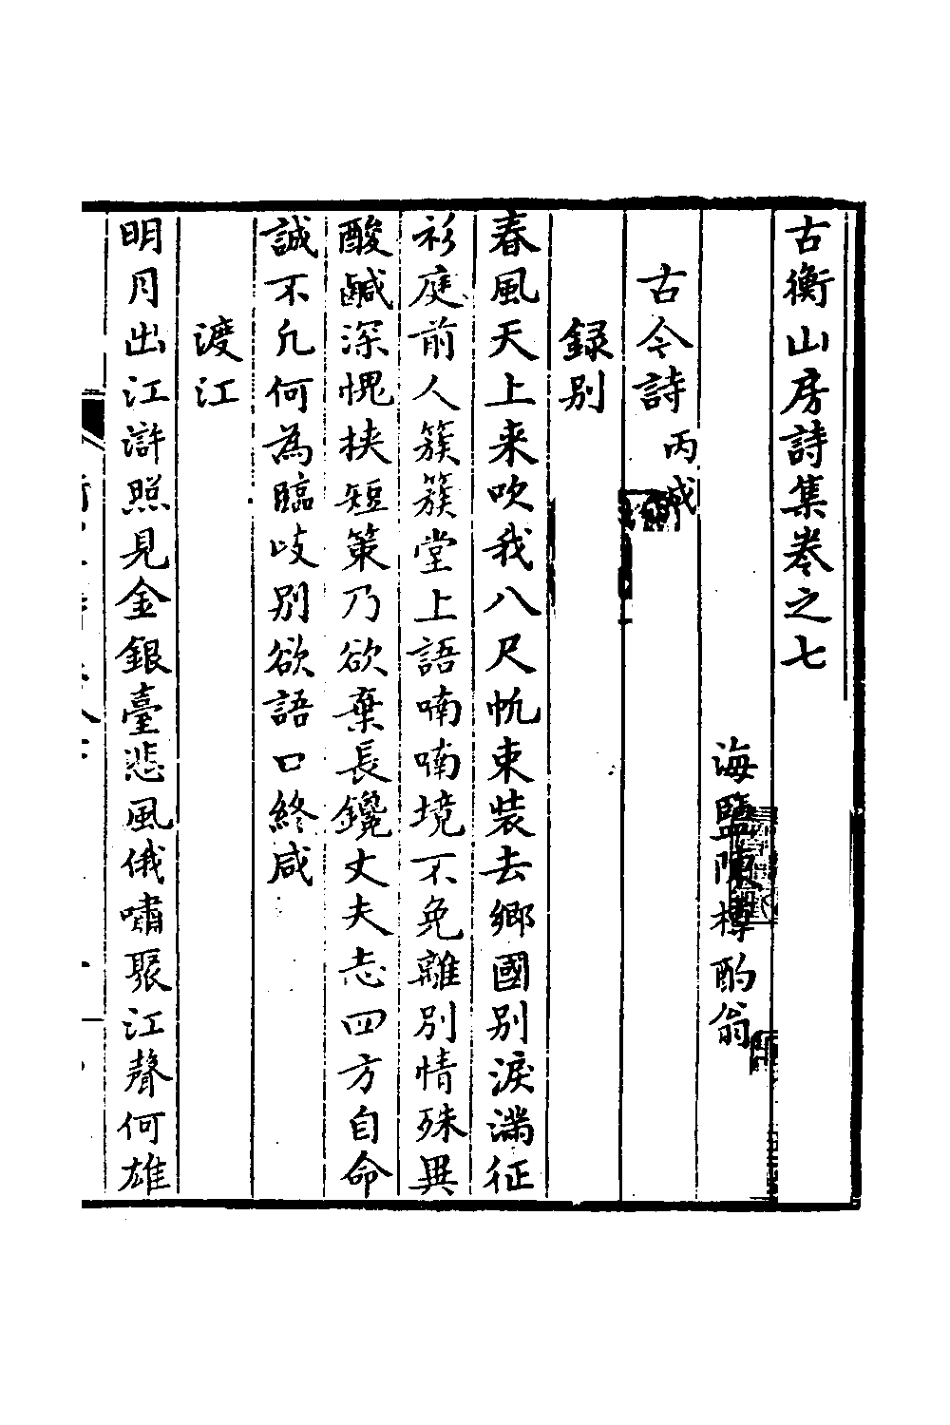 古衡山房詩集卷之七
海鹽陳樽酌翁
古今詩丙戌
録别
春風天上来吹我八尺帆束装去鄉國别淚滿征
衫庭前人簇簇堂上語喃喃境不免離别情殊異
酸鹹深愧挾短策乃欲棄長鑱丈夫志四方自命
誠不凢何為臨歧别欲語口終咸
渡江
明月出江滸照見金銀臺悲風俄嘯聚江聲何雄